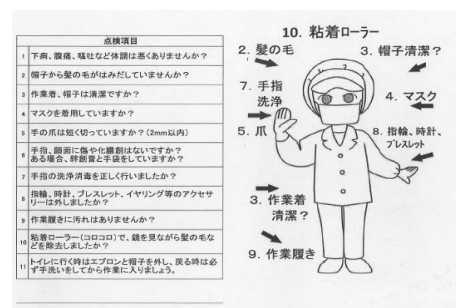 点検項目
1 下痢、腹痛、嘔吐など体調は悪くありませんか？
2 帽子から髪の毛がはみだしていませんか？
3 作業着、帽子は清潔ですか？
4 マスクを着用していますか？
5 手の爪は短く切っていますか？（2mm以内）
6 手指、顔面に傷や化膿創はないですか？
ある場合、絆創膏と手袋をしていますか？
7 手指の洗浄消毒を正しく行いましたか？
8 指輪、時計、ブレスレット、イヤリング等のアクセサ
リーは外しましたか？
9 作業履きに汚れはありませんか？
10 粘着ローラー（コロコロ）で、鏡を見ながら髪の毛な
どを除去しましたか？
11 トイレに行く時はエプロンと帽子を外し、戻る時は必
ず手洗いをしてから作業に入りましょう。
10. 粘着ローラー
2. 髪の毛
3. 帽子清潔？
7. 手指
洗浄
4. マスク
5. 爪
8. 指輪、時計、
ブレスレット
3. 作業着
清潔？
9. 作業履き